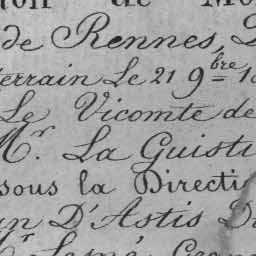 de Mo
de Rennes, D
terrain Le 21 9bre 18
Le Vicomte de
Mr. La Guisti
sous la Directi
D'Astis Du